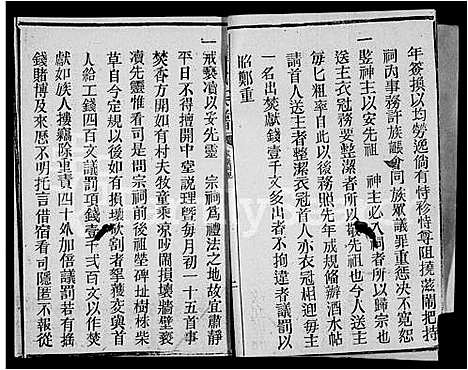 年簽換以均勞逸倘有恃移恃尊阻撓滋鬧把持
祠內事務許族眾會同族眾議罪重懲决不寬恕
一監神主以安先祖 神主必入祠者所以歸宗也
送主衣冠務要整潔者所以敬先祖也今再定凡
七粗率自此以後照先年成規條辦酒水帖
請首人送主者整潔衣冠首人亦衣冠相迎與主
一名出焚獻錢壹千文多出者不拘違者議罰以
昭鄭重
一戒褻瀆以安先靈 宗祠爲禮法之地故宜肅靜
平日不得擅開中堂說理暨每月初一十五首事
焚獻如有村夫牧童喧嘩啼鬧損壞牆壁褻
瀆先靈惟看司是問宗祠前後祖塋碑址樹株柴
草自今定規以後如有損壞砍割者拏獲衆與首
人給工錢四百文議罰項錢壹千弍百文以作焚
獻如族人搜竊除重責四十外加倍議罰若有賭
錢賭博及來歷不明托言借宿看司隱匿不報從